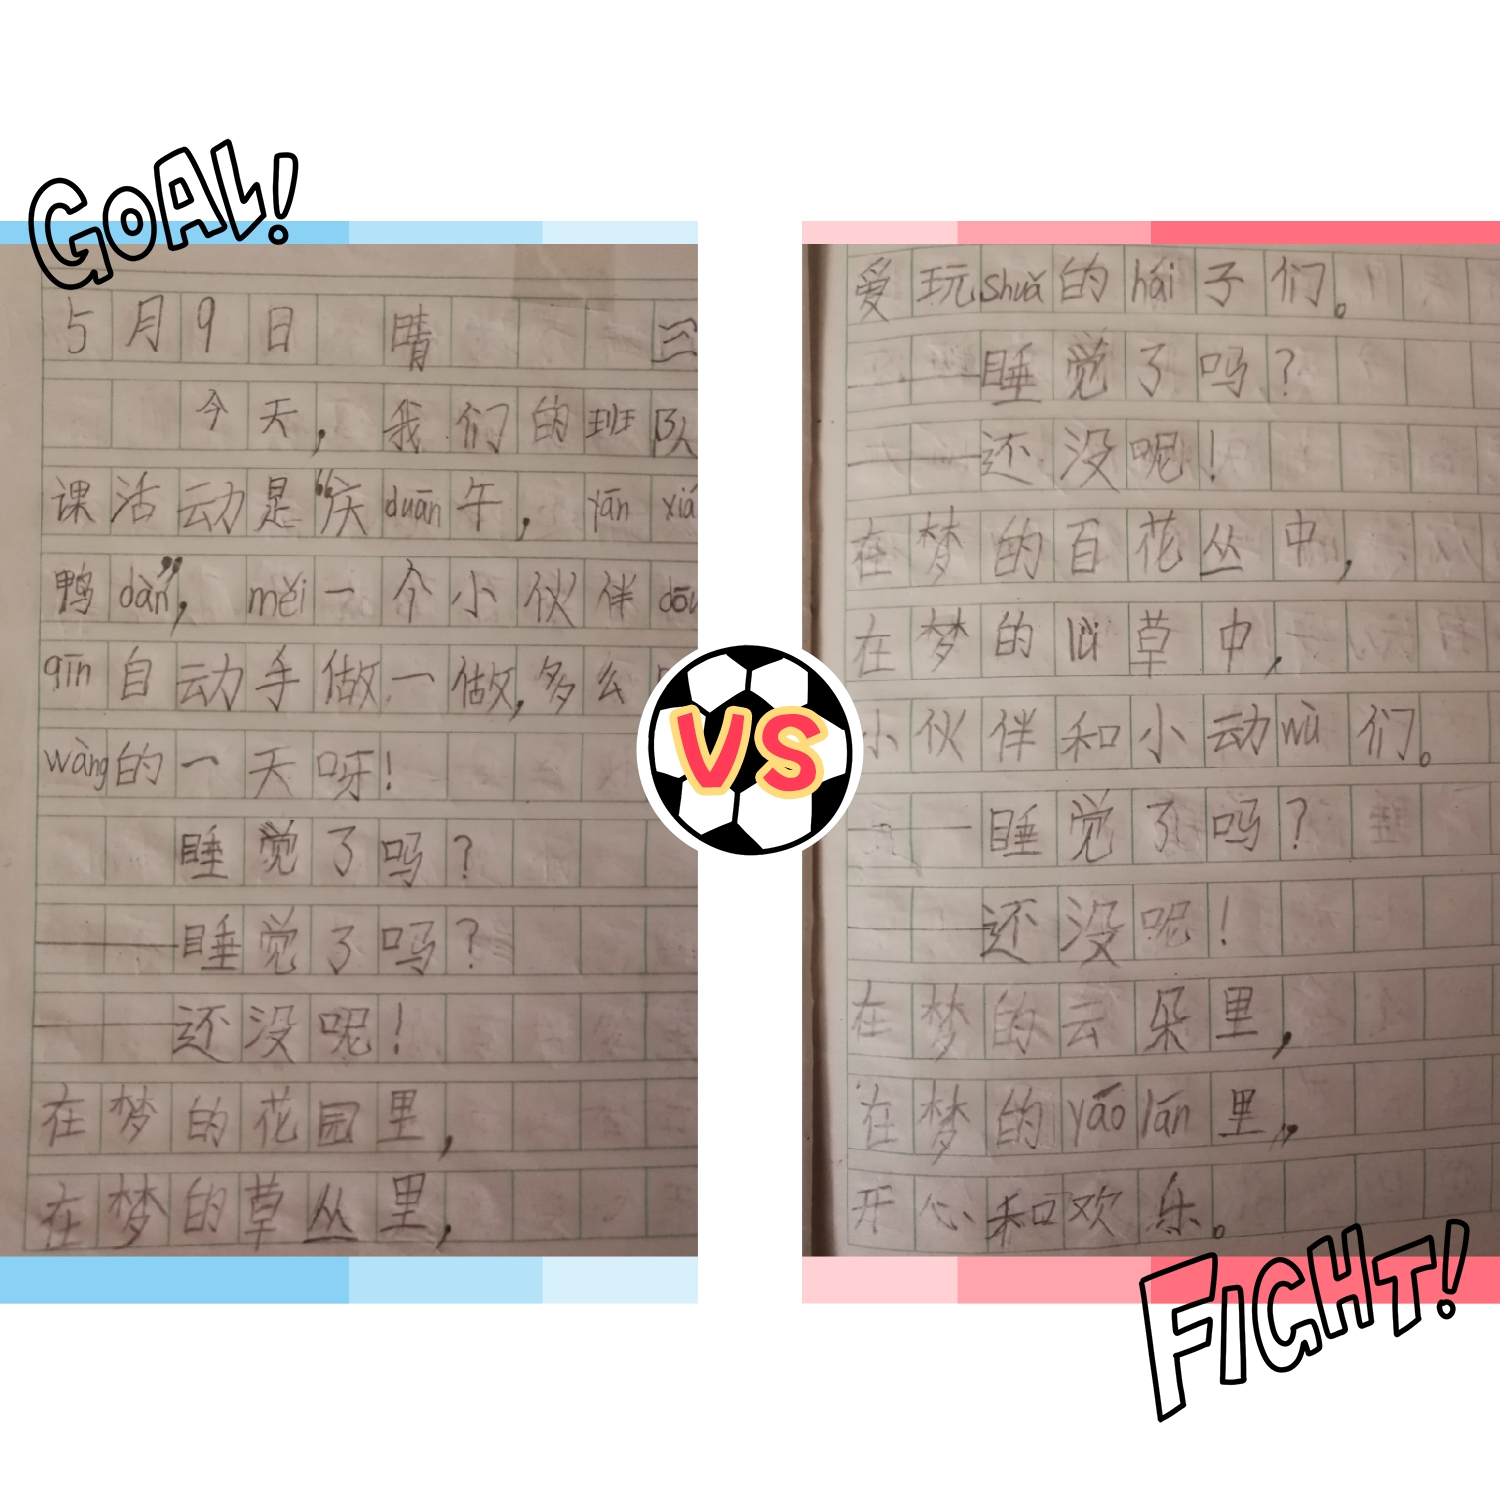 GOAL!
5月9日 晴 三
今天，我们的班队
课活动是“庆duān午，yān xiá
鸭dàn”，měi一个小伙伴dōu
qīn自动手做一做，多么
wàng的一天呀！
睡觉了吗？
——睡觉了吗？
——还没呢！
在梦的花园里，
在梦的草丛里，
VS
爱玩shuǎ的hái子们。
——睡觉了吗？
——还没呢！
在梦的百花丛中，
在梦的lǜ草中，
小伙伴和小动wù们。
——睡觉了吗？
——还没呢！
在梦的云朵里，
在梦的yáo lán里，
开心和欢乐。
FIGHT!